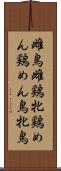 雌鳥雌鶏牝鶏め
ん鶏めん鳥牝鳥